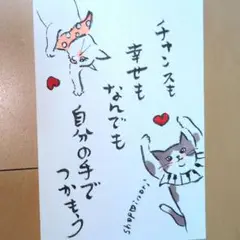 チャンスも
幸せも
なんでも
自分の手で
つかもう